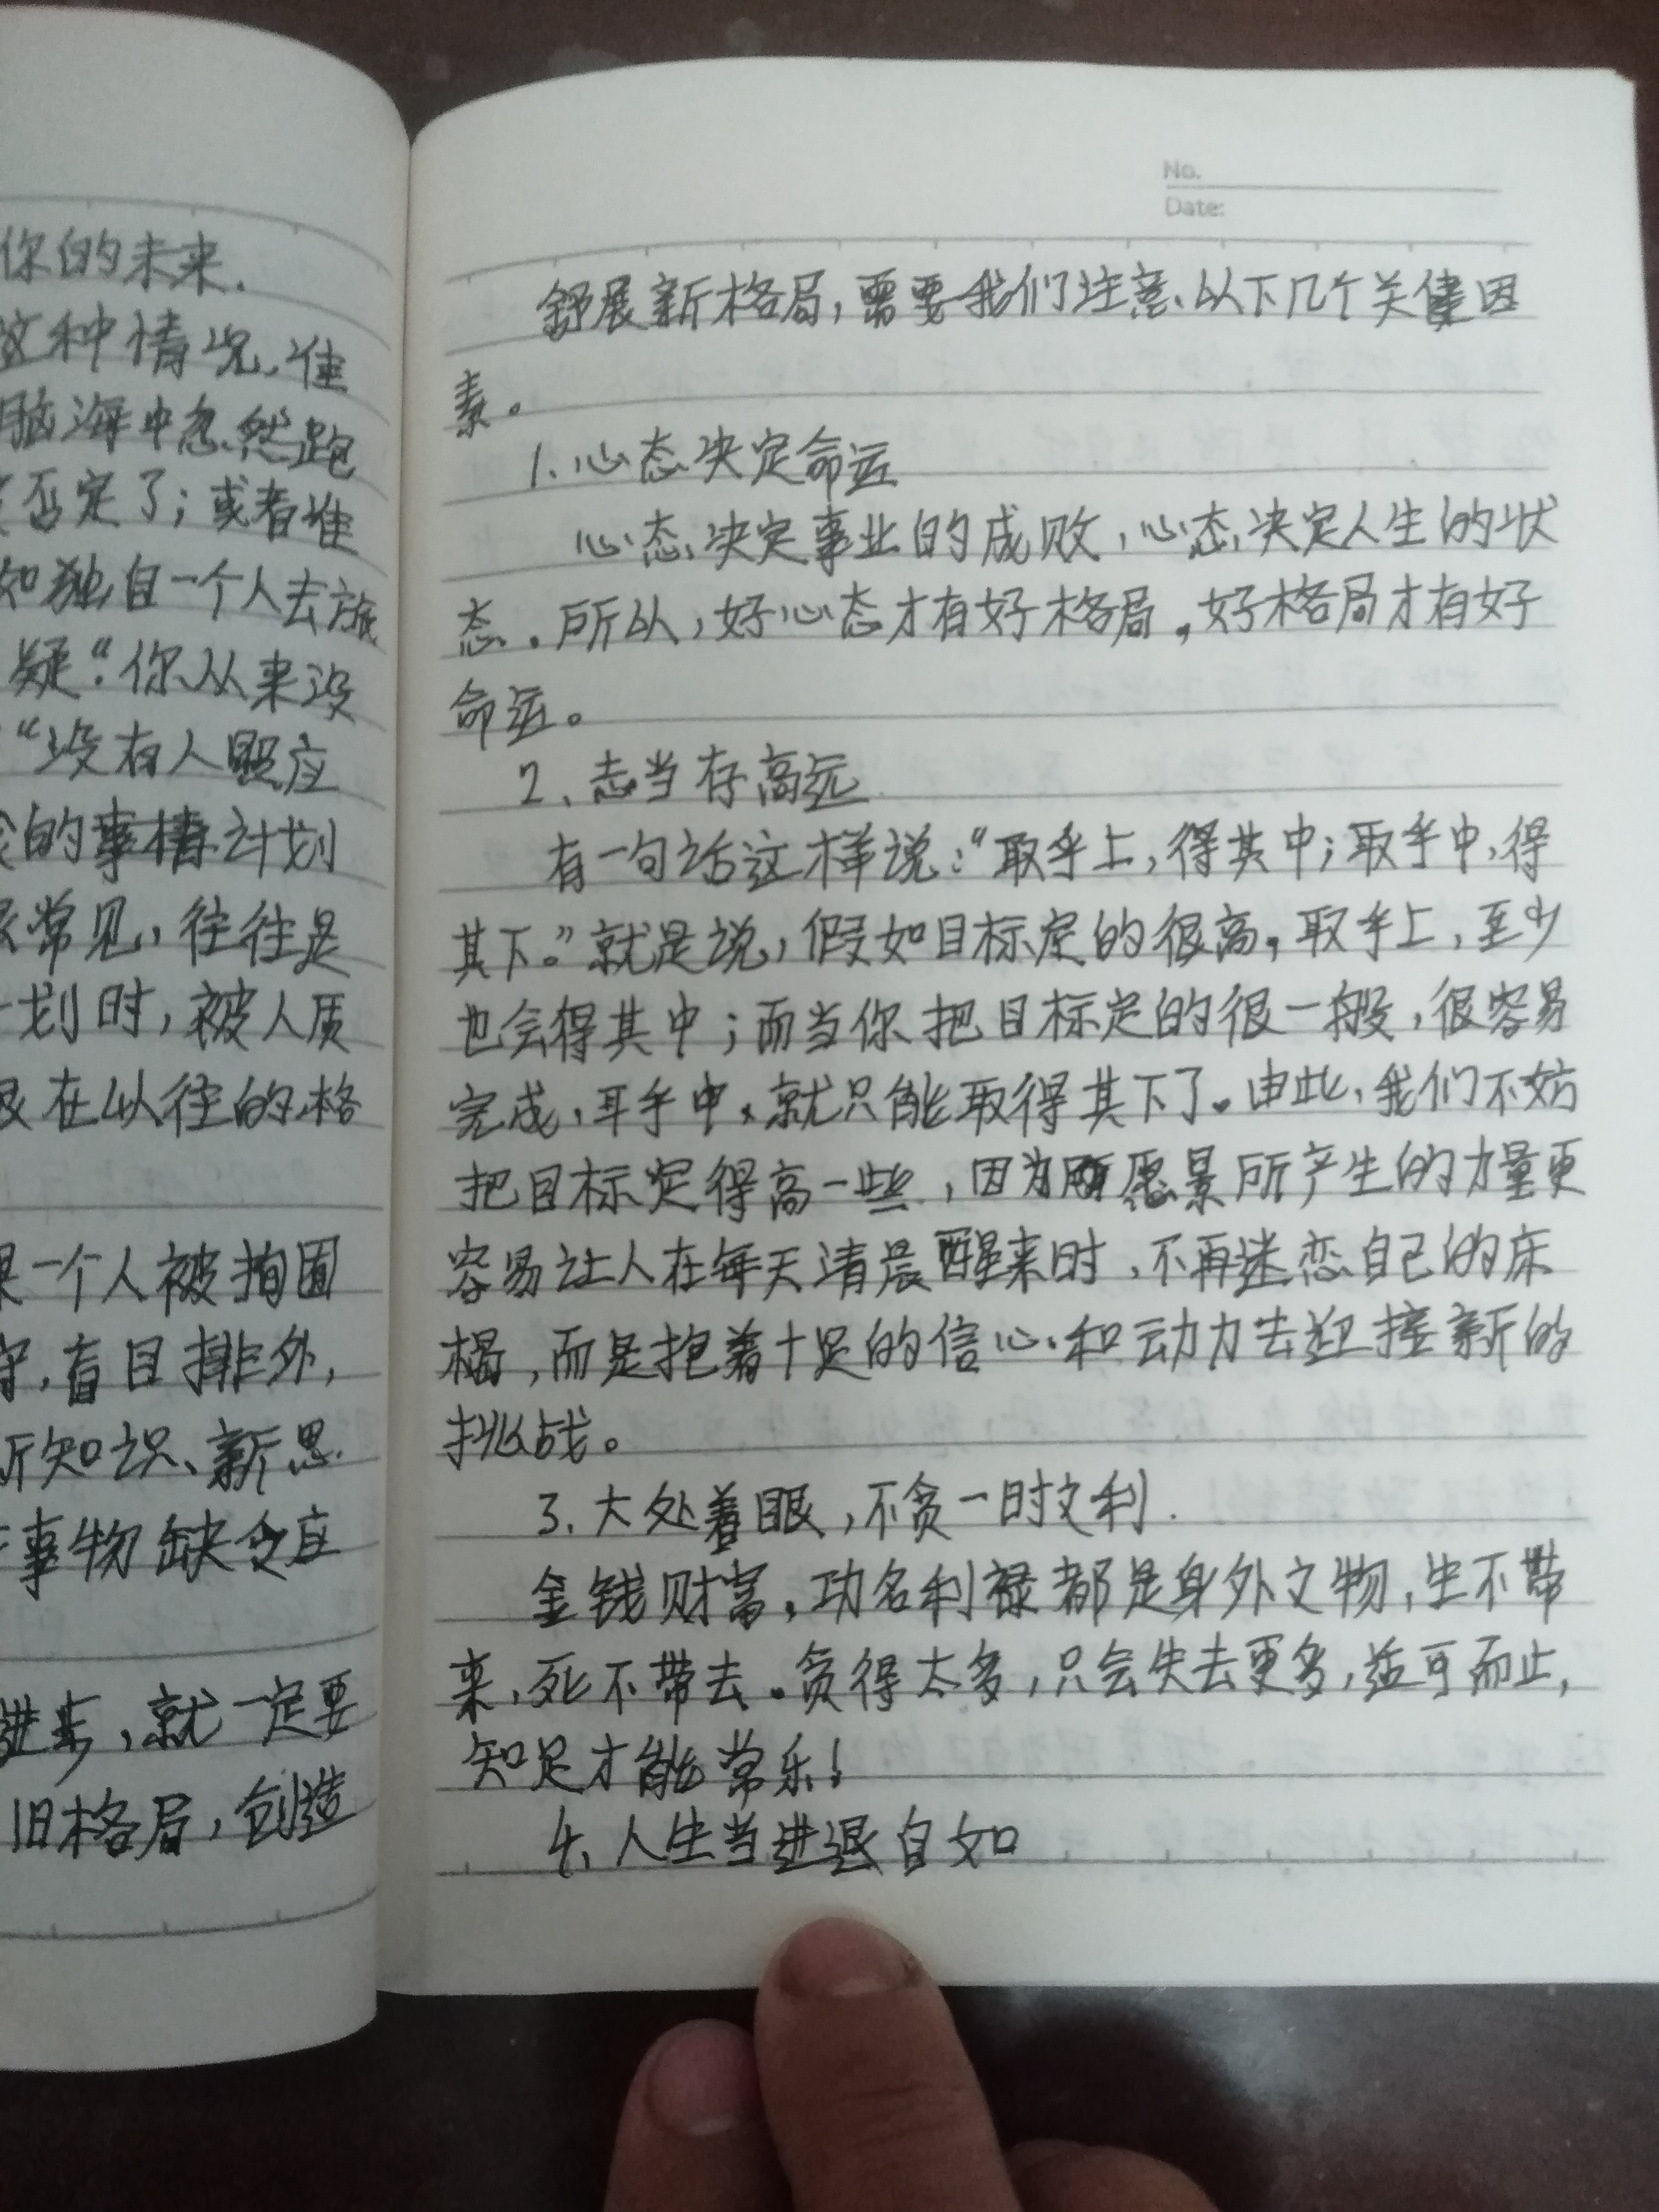 你的未来.
这种情况,谁
脑海中忽然跑
否定了;或者谁
如独自一个人去旅
疑“你从来没
“没有人照应
的事情计划
常见,往往是
划时,被人质
在以往的格
一个人被拘囿
守,盲目排外,
新知识、新思
事物缺乏应
进步,就一定要
旧格局,创造
No.
Date:
舒展新格局,需要我们注意以下几个关键因
素。
1.心态决定命运
心态决定事业的成败,心态决定人生的状
态.所以,好心态才有好格局,好格局才有好
命运。
2、志当存高远
有一句话这样说:“取乎上,得其中;取乎中,得
其下。”就是说,假如目标定的很高,取乎上,至少
也会得其中;而当你把目标定的很一般,很容易
完成,取乎中,就只能取得其下了。由此,我们不妨
把目标定得高一些,因为愿景所产生的力量更
容易让人在每天清晨醒来时,不再迷恋自己的床
榻,而是抱着十足的信心和动力去迎接新的
挑战。
3.大处着眼,不贪一时之利.
金钱财富,功名利禄都是身外之物,生不带
来,死不带去.贪得太多,只会失去更多,适可而止,
知足才能常乐!
4、人生当进退自如